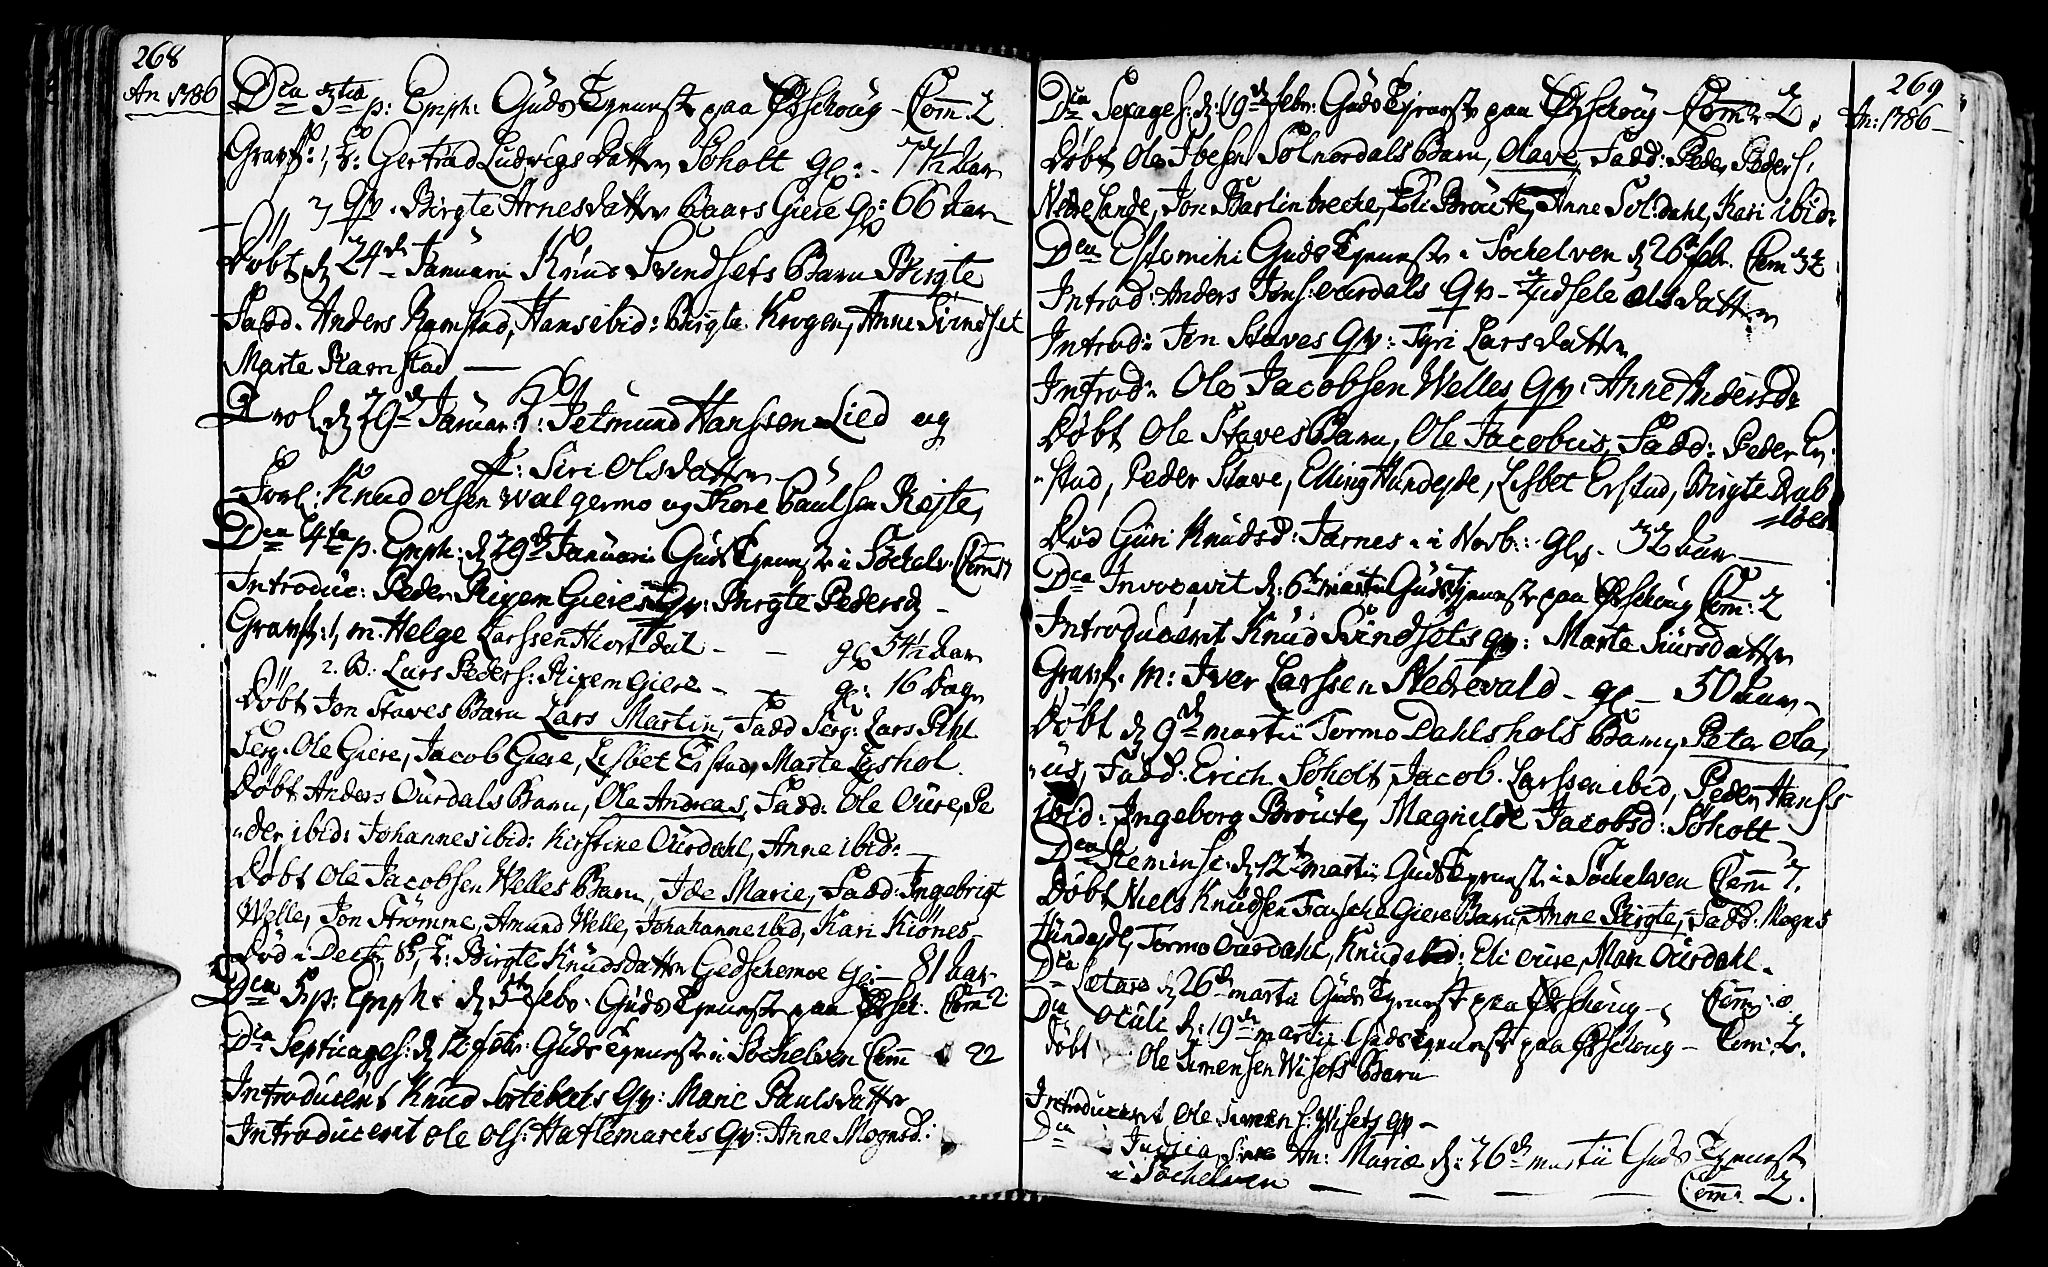 268
An 1786
Dca 3tia p: Epiph: Guds Tjeneste paa Ørschoug - Com: 2
Gravf: 1, K: Gertrud Ludvigs Datter Søholt gl: - 71½ Aar
2 qv. Birgte Arnesdatter Baars Giere gl: 66 Aar
Døbt d 24de Januari Knud Svindsets Barn Birgte
Fadd. Anders Ramstad, Hans ibid: Birgte Krogen, Anne Svindset
Marte Ramstad
Trol. d 29d Januar: K: Petmund Hanssen Lied og
F: Siri Olsdatter
Forl: Knud Olsen Walgermo og Thore Paulsen Rejte,
Dca 4ta p. Epiph: d 29d Januari Guds Tjeneste i Søchelv: Com 17
Introduc: Peder Rixem Gieres Qv: Birgte Pedersd -
Gravf: 1, m. Helge Larssen Hiortdal - - gl 54½ Aar
2. B: Lars Peders: Rixem Giere - gl: 16 Dage
Døbt Jon Staves Barn Lars Martin, Fadd Serg: Lars Pihl
Serg. Ole Giere, Jacob Giere, Lisbet Erstad, Marte Lyshol.
Døbt Anders Ourdals Barn, Ole Andreas, Fadd: Ole Oure, Pe
der ibid: Johannes ibid: Kirstine Ourdahl, Anne ibid:
Døbt Ole Jacobsen Welles Barn, Ide Marie, Fadd: Ingebrigt
Welle, Jon Strømme, Amund Welle, Johanne ibid, Kari Kiønes
Død i Decbr, K: Birgte Knudsdatter Gedschemoe gl: - 81 Aar
Dca 5 p: Epiph: d 5te febr. Guds Tjeneste paa Ørsch. Com 2
Dca Septuages: d 12 febr: Guds Tjeneste i Søchelven Com 22
Introducent Knud Sortebechs Qv: Marie Paulsdatter
Introducent Ole Ols: Hatlemarchs Qv: Anne Mognsd:
269
An: 1786
Dca Sexages: d: 19d febr: Guds Tjeneste paa Ørschoug Com: 2.
Døbt Ole Ibesen Solnordals Barn, Olave, Fadd: Peder Peders:
Nedrelande, Jon Barlinbrecke, Eli Broute, Anne Sol:dahl, Kari ibid:
Dca Estomihi Guds Tjeneste i Søchelven d 26 febr. Com 32
Introd: Anders Jons: Ourdals Qv - Zidsele Olsdatter
Introd: Jon Staves Qv: Gyri Larsdatter
Introd: Ole Jacobsen Welles Qv: Anne Andersd:
Døbt Ole Staves Barn, Ole Jacobus, Fadd: Peder Er
stad, Peder Stave, Elling Hundejde, Lisbet Erstad, Birgte Drab
løes
Død Guri Knudsd: Jarnes i Norb: gl. 32 Aar
Dca Invocavit d: 6te martii Guds Tjeneste paa Ørschoug Com: 2
Introducent Knud Svindsets qv: Marte Siursdatter
Gravf. m: Iver Larssen Nedrevald - gl - 50 Aar
Døbt d 9de martii Tormo Dahlshols Barn, Peter Ola,
us, Fadd: Erich Søholt, Jacob Larssen ibid, Peder Hanss
ibid: Ingeborg Broute, Magnilde Jacobsd: Søholt
Dca Reminisc: d 12te martii Guds Tjeneste i Søchelven Com 7.
Døbt Niels Knudsen Fausche Giere Barn, Anne Birgte, Fadd: Mogns
Hundejde, Tormo Ourdahl, Knud ibid: Eli Oure, Mari Ourdahl.
Dca Lætare d 26de martii Guds Tjeneste paa Ørschoug - Com: 2.
Dca Oculi d: 19de martii Guds Tjeneste paa Ørschoug - Com: 2.
Døbt Ole Simensen Wisets Barn
Introducent Ole Simens: Wisets qv -
Dca Judica sive An: Mariæ d: 26de martii Guds Tjeneste
i Søchelven Com: 2.